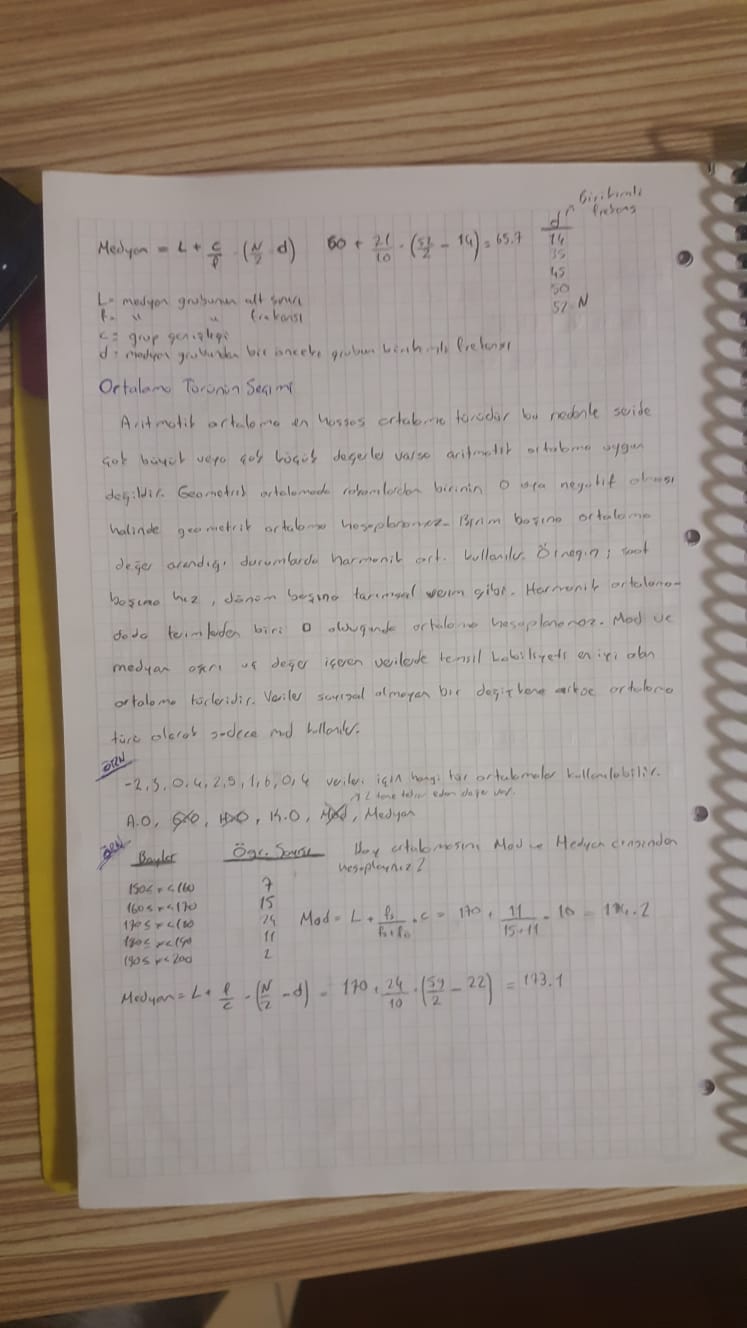 Birikimli
frekans
Medyan = L + c/f · (N/2 - d)   60 + 21/10 · (52/2 - 14) = 65.7   d
14
35
45
50
52 N
L = medyon grubunun alt sınırı
f = " " frekansı
c = grup genişliği
d = medyon grubundan bir önceki grubun birikimli frekansı
Ortalama Türünün Seçimi
Aritmatik ortalama en hassas ortalama türüdür bu nedenle seride
çok büyük veya çok küçük değerler varsa aritmatik ortalama uygun
değildir. Geometrik ortalamada rakamlardan birinin 0 veya negatif olması
halinde geometrik ortalama hesaplanamaz. Birim başına ortalama
değer arandığı durumlarda harmonik ort. kullanılır. Örneğin; saat
başına hız, dönüm başına tarımsal verim gibi. Harmonik ortalama-
dada terimlerden biri 0 olduğunda ortalama hesaplanamaz. Mod ve
medyan aşırı uç değer içeren verilerde temsil kabiliyeti en iyi olan
ortalama türleridir. Veriler sayısal olmayan bir değişkene aitse ortalama
türü olarak sadece mod kullanılır.
ÖRN
-2, 3, 0, 4, 2, 5, 1, 6, 0, 4 veriler için hangi tür ortalamalar kullanılabilir.
2 tane tekrar eden değer var.
A.O, G.O, H.O, K.O, Mod, Medyan
ÖRN
Boylar   Öğr. Sayısı   Boy ortalamasını Mod ve Medyan cinsinden
hesaplayınız?
150≤x<160   7
160≤x<170   15
170≤x<180   24   Mod = L + · c = 170 + 11/15+11 · 10 =
180≤x<190   11
190≤x<200   2
Medyan = L + f/c · (N/2 - d) = 170 + 24/10 · (59/2 - 22) = 173.1